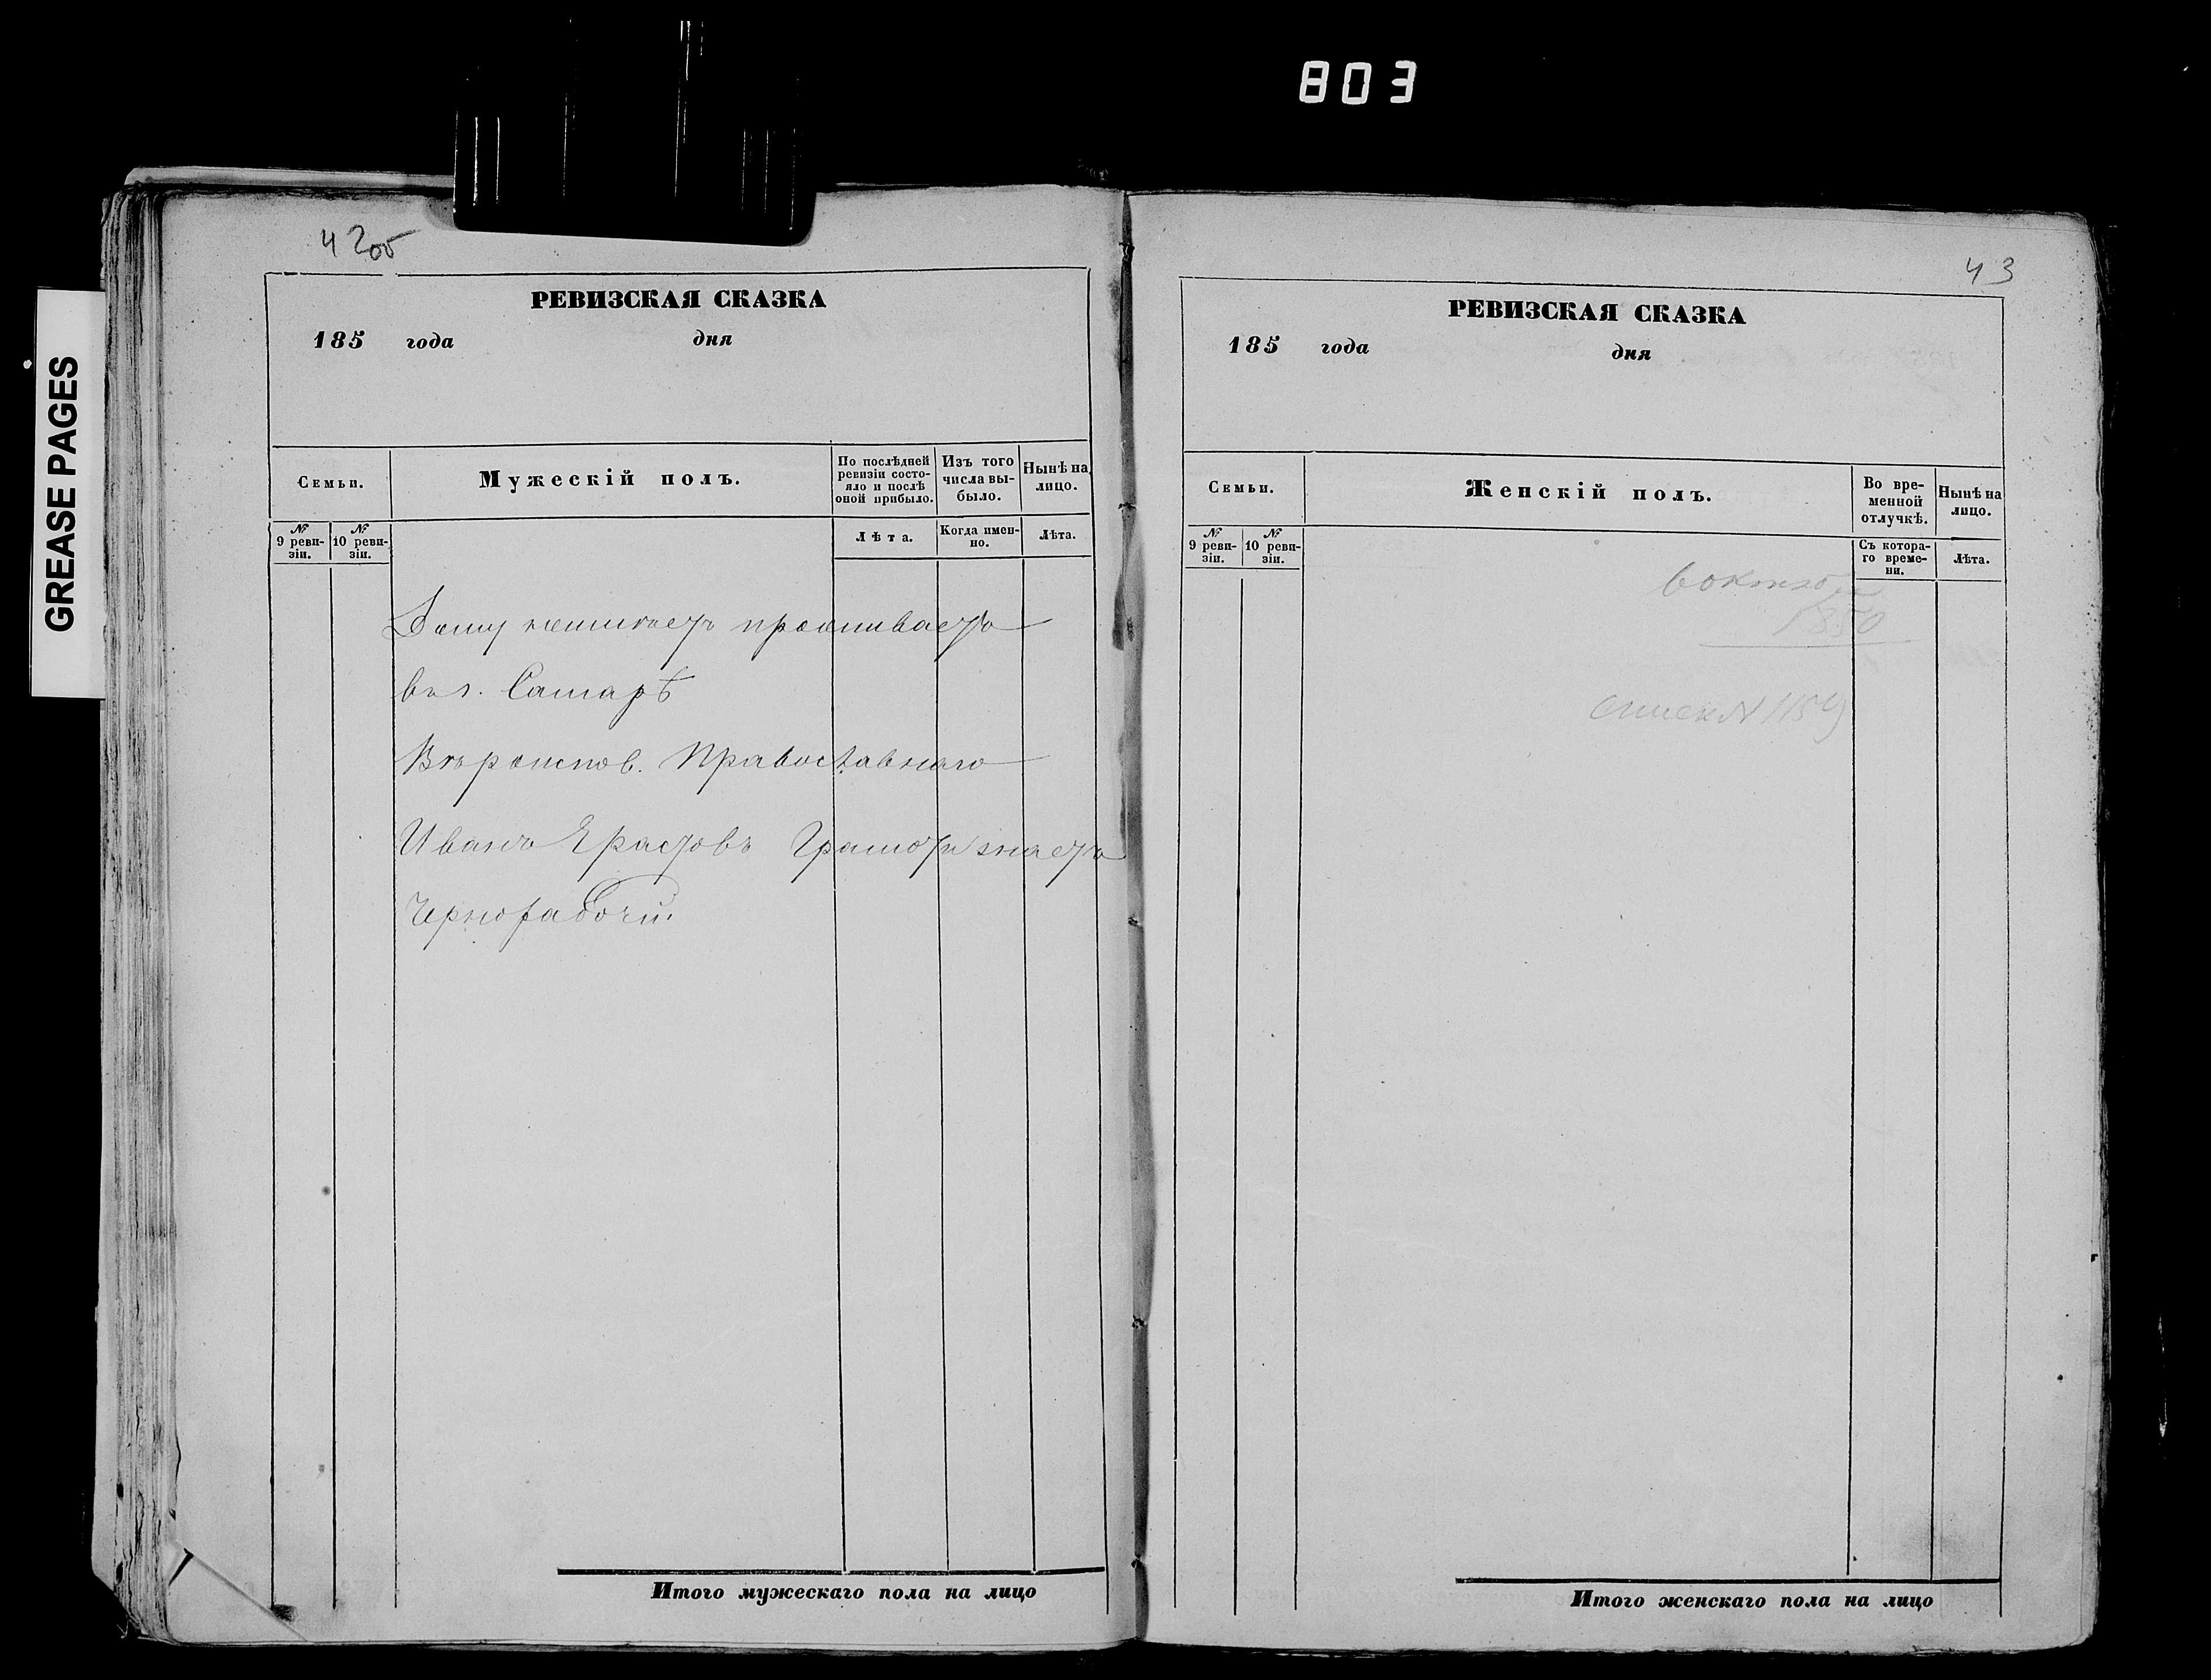 803
GREASE PAGES
42об
РЕВИЗСКАЯ СКАЗКА
185 года дня
Семьи.
Мужескій полъ.
По послѣдней ревизіи состо-
яло и послѣ
оной прибыло.
Изъ того
числа вы-
было.
Нынѣ на
лицо.
№
9 реви-
зіи.
№
10 реви-
зіи.
Лѣта.
Когда имен-
но.
Лѣта.
Дому неимеетъ проживаетъ
въ г. Самарѣ
Вѣроиспов. Православнаго
Иванъ Ерастовъ Грамоти знаетъ
Чернорабочий.
Итого мужескаго пола на лицо
43
РЕВИЗСКАЯ СКАЗКА
185 года дня
Семьи.
Женскій полъ.
Во вре-
менной
отлучкѣ.
Нынѣ на
лицо.
№
9 реви-
зіи.
№
10 реви-
зіи.
Съ котора-
го време-
ни.
Лѣта.
1850
N 1159
Итого женскаго пола на лицо